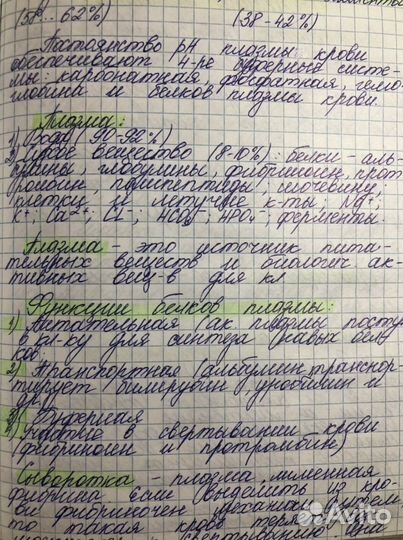 (58... 62%) (38-42%)
Постоянство pH плазмы крови
обеспечивают 4-ре буферные систе-
мы: карбонатная, фосфатная, гемо-
глобина и белков плазмы крови.
Плазма:
1) Вода (90-92%)
2) Сухое вещество (8-10%), белки - аль-
бумины, глобулины, фибриноген, прот
ромбин, полипептиды,
и летучие к-ты; Na+;
K+; Ca2+; Cl-; HCO3-; HPO4-; ферменты.
Плазма - это источник пита-
тельных веществ и биологич. ак-
тивных вещ-в для кл
Функции белков плазмы:
1) Питательная (ак плазмы посту
в кл-ку для синтеза новых бел
ков.
2) Транспортная (альбумин транспор-
тирует билирубин, уробилин и
др.)
3) Буферная
4) Участие в свертывании крови
(фибриноген и протромбин)
Сыворотка - плазма, лишенная
фибрина если выделить из кро-
ви фибриноген механич. путем,
то такая кровь теряет
свертыванию.
Avito